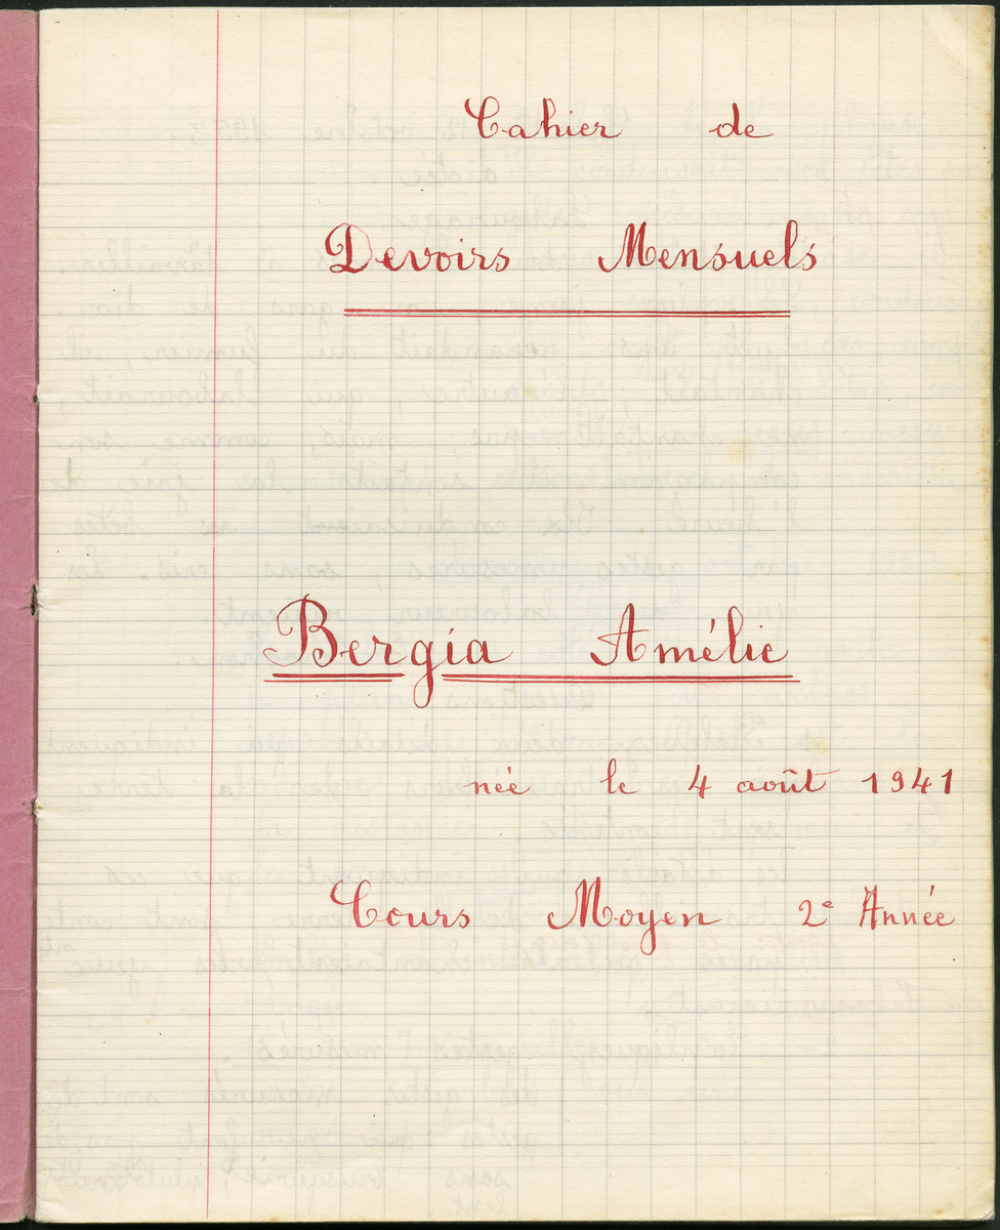 Cahier de
Devoirs Mensuels
Bergia Amélie
née le 4 août 1941
Cours Moyen 2e Année